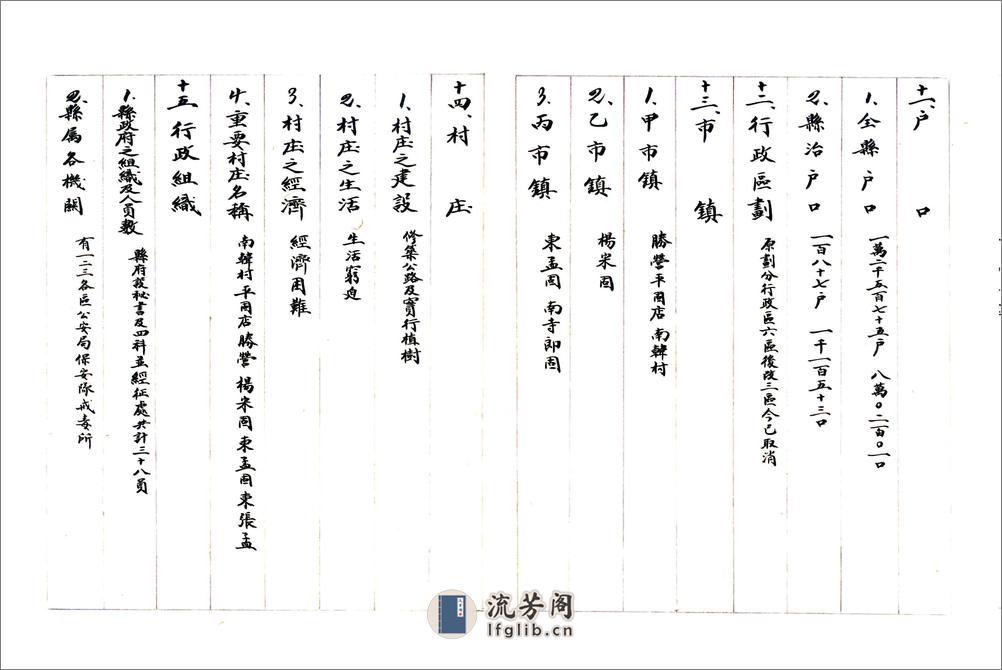 十一、户口
1、全縣户口 一萬二千五百七十五户 八萬〇二百〇一口
2、縣治户口 一百八十七户 一千一百五十三口
十二、行政區劃 原劃分行政區六區後改三區今已取消
十三、市鎮
1、甲市鎮 勝營平固店南韓村
2、乙市鎮 楊米固
3、丙市鎮 東孟固 南寺郎固
十四、村庄
1、村庄之建設 修築公路及實行植樹
2、村庄之生活 生活窮迫
3、村庄之經濟 經濟困難
4、重要村庄名稱 南韓村平固店勝營 楊米固東孟固東張孟
十五、行政組織
1、縣政府之組織及人員數 縣府設秘書及四科並經征處共計三十八員
2、縣属各機関 有一二三各區公安局保安隊戒毒所
流芳阁
lfglib.cn